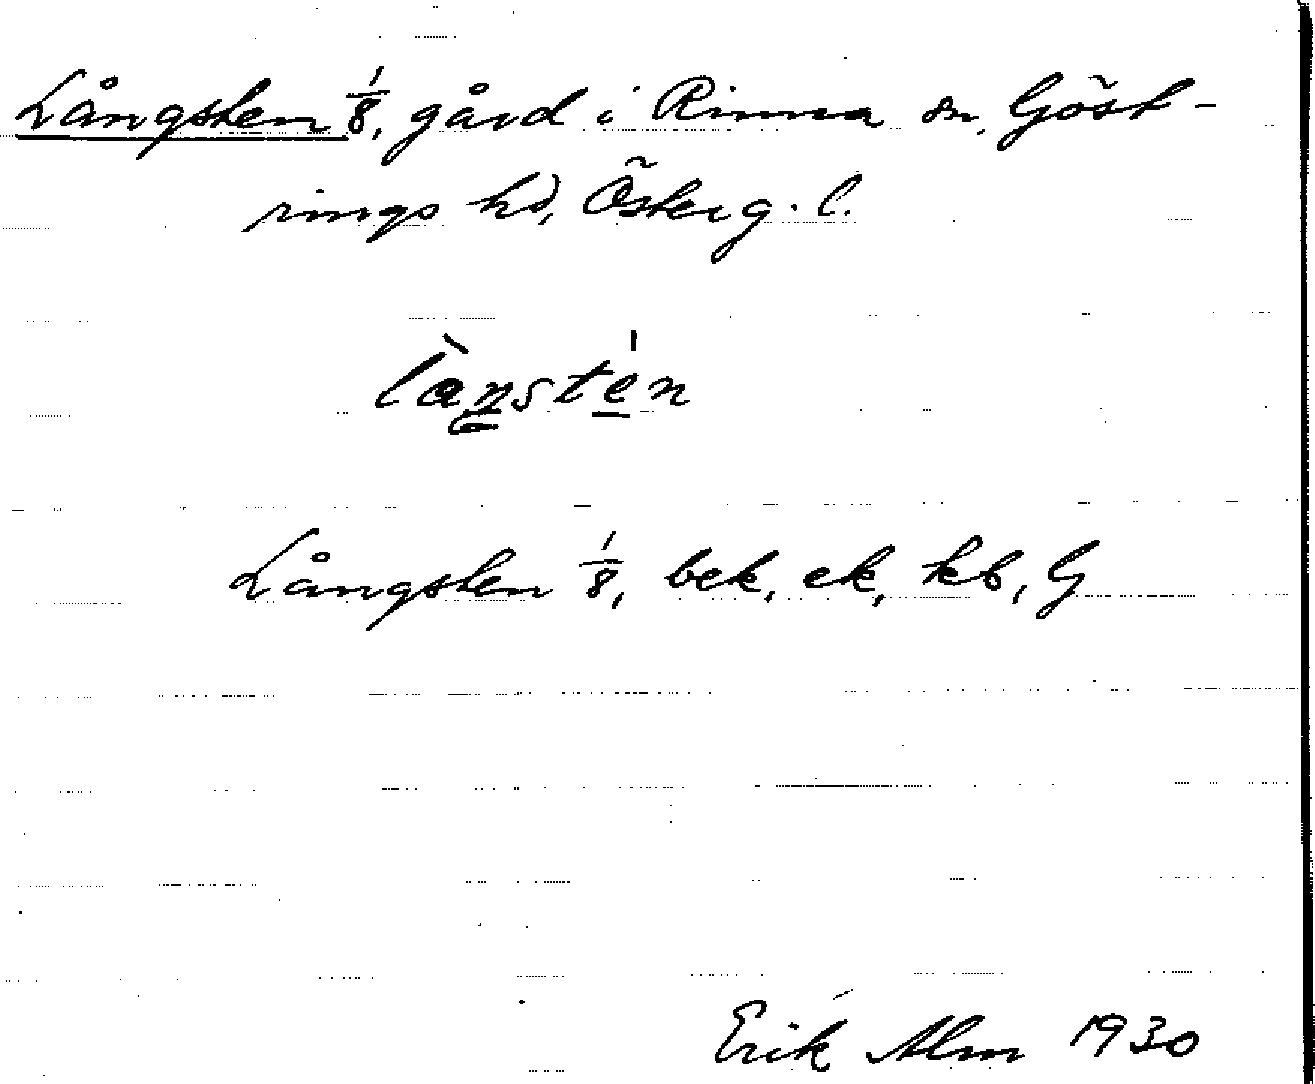 Långsten 1/8, gård i Rinna sn, Göst-
rings hd, Österg. l.
Långsten 1/8, bek, ek, kb, G
Erik Alm 1930